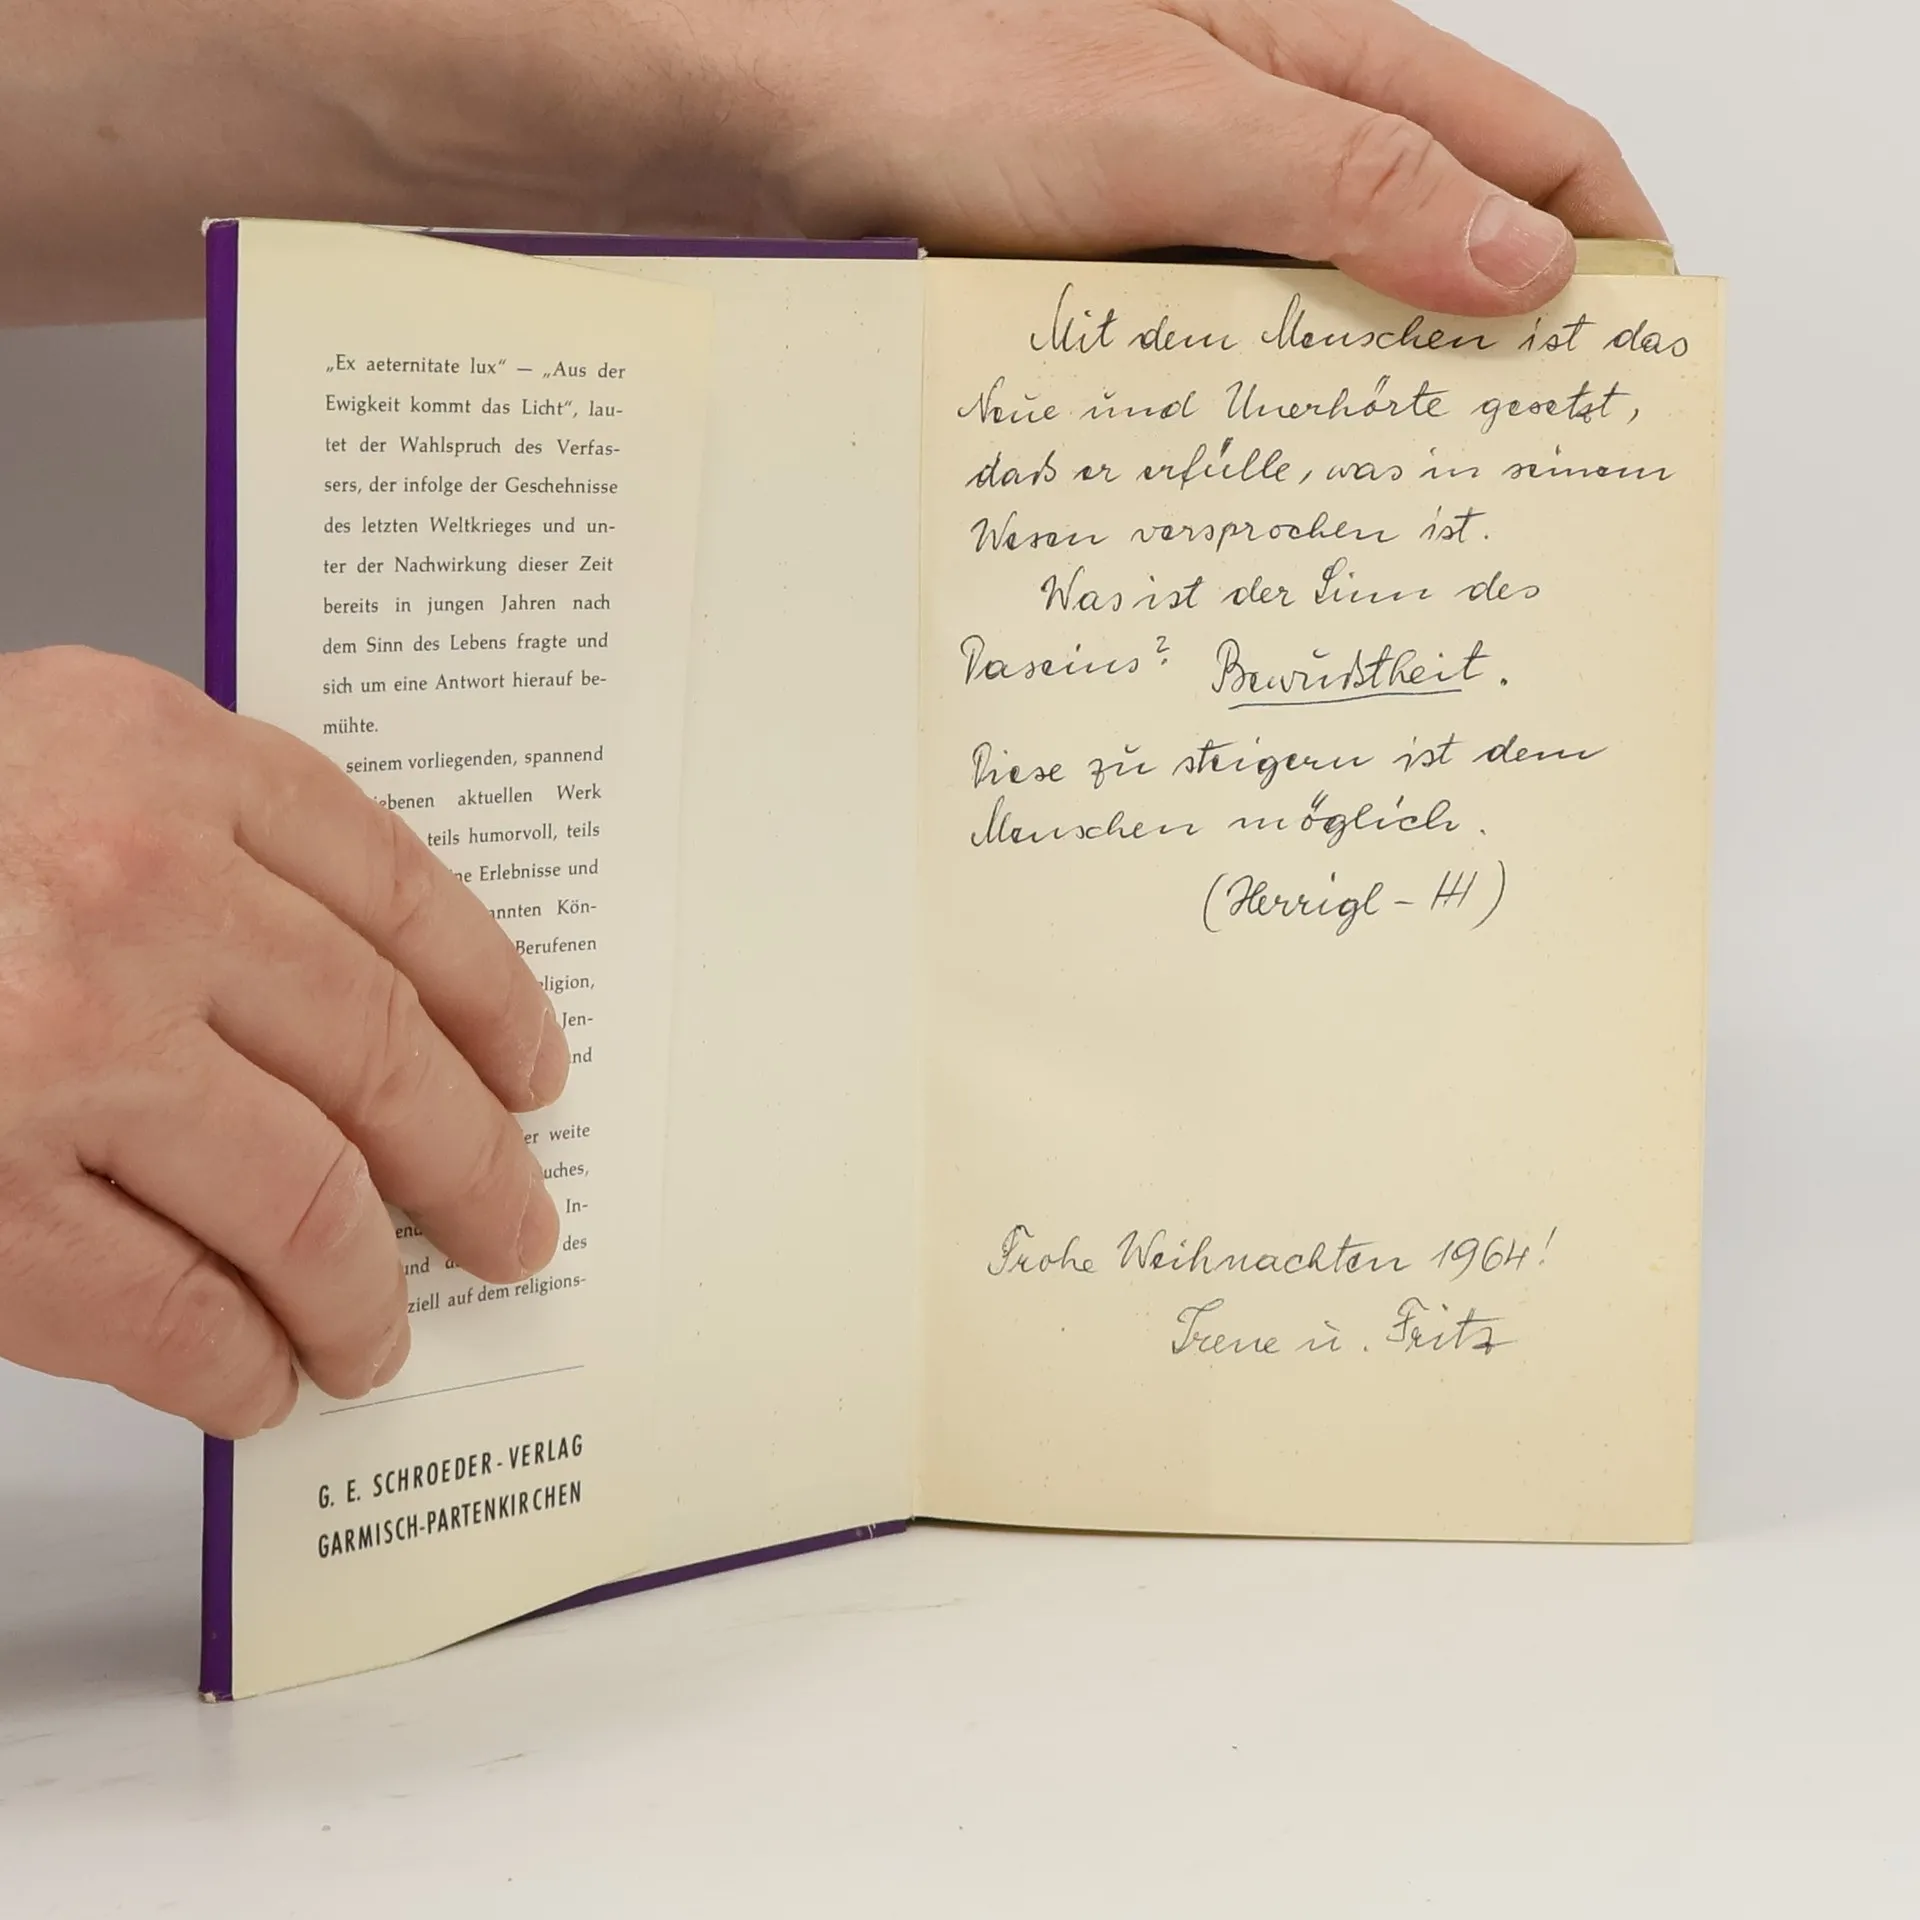 „Ex aeternitate lux“ — „Aus der
Ewigkeit kommt das Licht“, lau-
tet der Wahlspruch des Verfas-
sers, der infolge der Geschehnisse
des letzten Weltkrieges und un-
ter der Nachwirkung dieser Zeit
bereits in jungen Jahren nach
dem Sinn des Lebens fragte und
sich um eine Antwort hierauf be-
mühte.
seinem vorliegenden, spannend
aktuellen Werk
teils humorvoll, teils
Erlebnisse und
Kön-
Berufenen
Jen-
weite
In-
des
und
auf dem religions-
G. E. SCHROEDER-VERLAG
GARMISCH-PARTENKIRCHEN
Mit dem Menschen ist das
Neue und Unerhörte gesetzt,
daß er erfülle, was in seinem
Wesen versprochen ist.
Was ist der Sinn des
Daseins? Bewußtheit.
Diese zu steigern ist dem
Menschen möglich.
(Herrigl -
Frohe Weihnachten 1964!
Irene u. Fritz